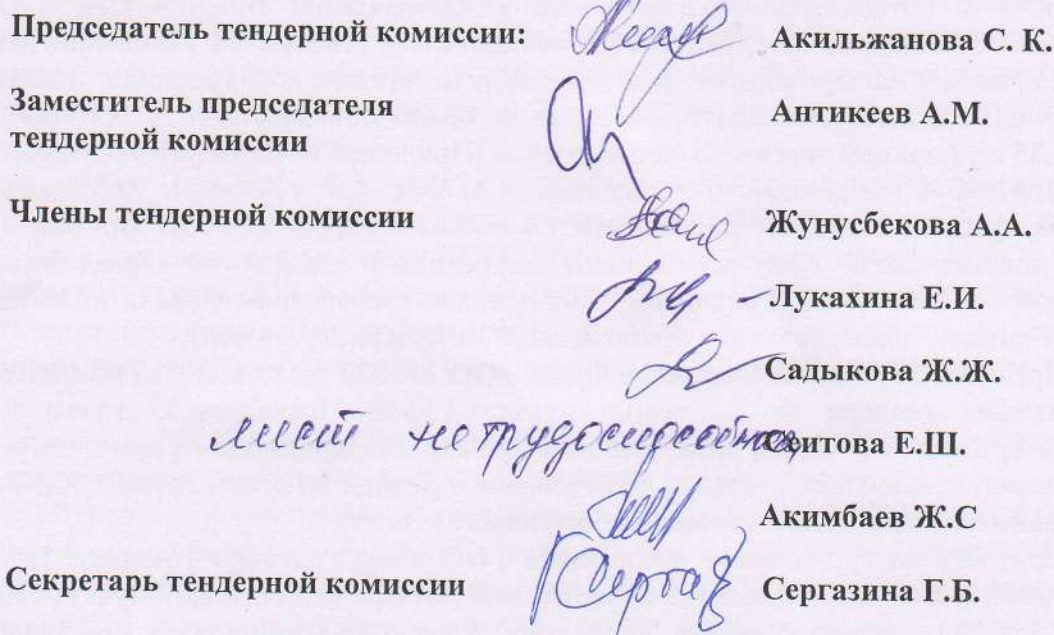 Председатель тендерной комиссии: Акильжанова С. К.
Заместитель председателя
тендерной комиссии Антикеев А.М.
Члены тендерной комиссии Жунусбекова А.А.
Лукахина Е.И.
Садыкова Ж.Ж.
лист нетрудоспособности Сеитова Е.Ш.
Акимбаев Ж.С
Секретарь тендерной комиссии Сергазина Г.Б.